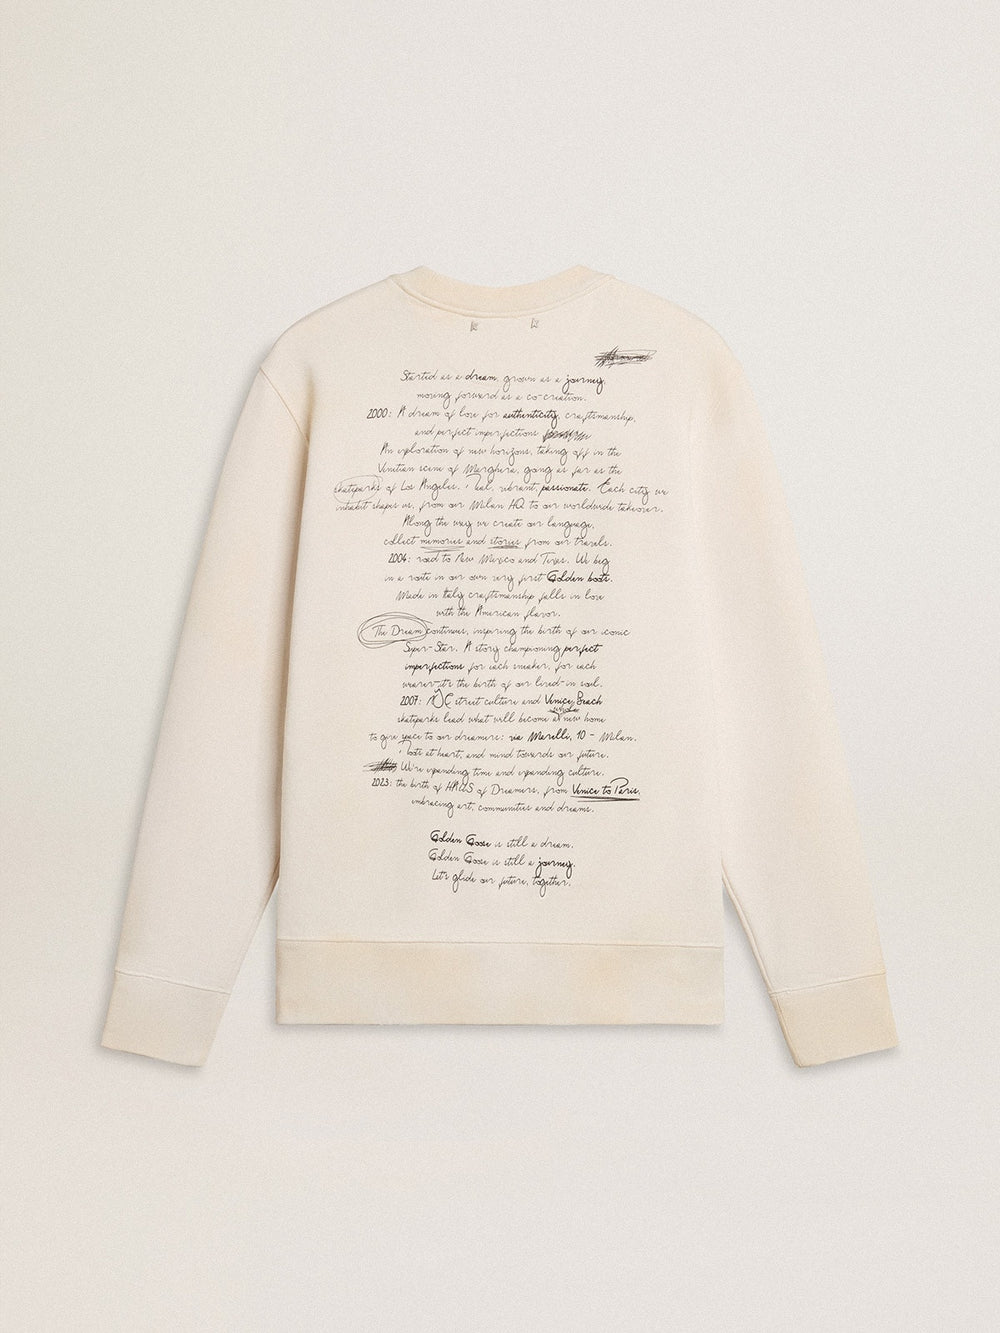 Started as a dream, grown as a journey,
moving forward as a co-creation.
2000: A dream of love for authenticity, craftsmanship,
and perfect imperfections
An exploration of new horizons, taking off in the
Venetian scene of Marghera, going as far as the
skateparks of Los Angeles. Real, vibrant, passionate. Each city we
inhabit shapes us, from our Milan HQ to our worldwide takeover.
Along the way we create our language,
collect memories and stories from our travels.
2004: road to New Mexico and Texas. We beg
in a route in our own very first Golden boots.
Made in Italy craftsmanship falls in love
with the American flavor.
The Dream continues, inspiring the birth of our iconic
Super-Star. A story championing perfect
imperfections for each sneaker, for each
wearer-it's the birth of our lived-in soul.
2007: NYC street culture and Venice Beach
skateparks lead what will become a new home
to give space to our dreamers: via Marelli, 10 - Milan.
Roots at heart, and mind towards our future.
We're expanding time and expanding culture.
2023: the birth of HAUS of Dreamers, from Venice to Paris,
embracing art, communities and dreams.
Golden Goose is still a dream.
Golden Goose is still a journey.
Let's glide our future, together.